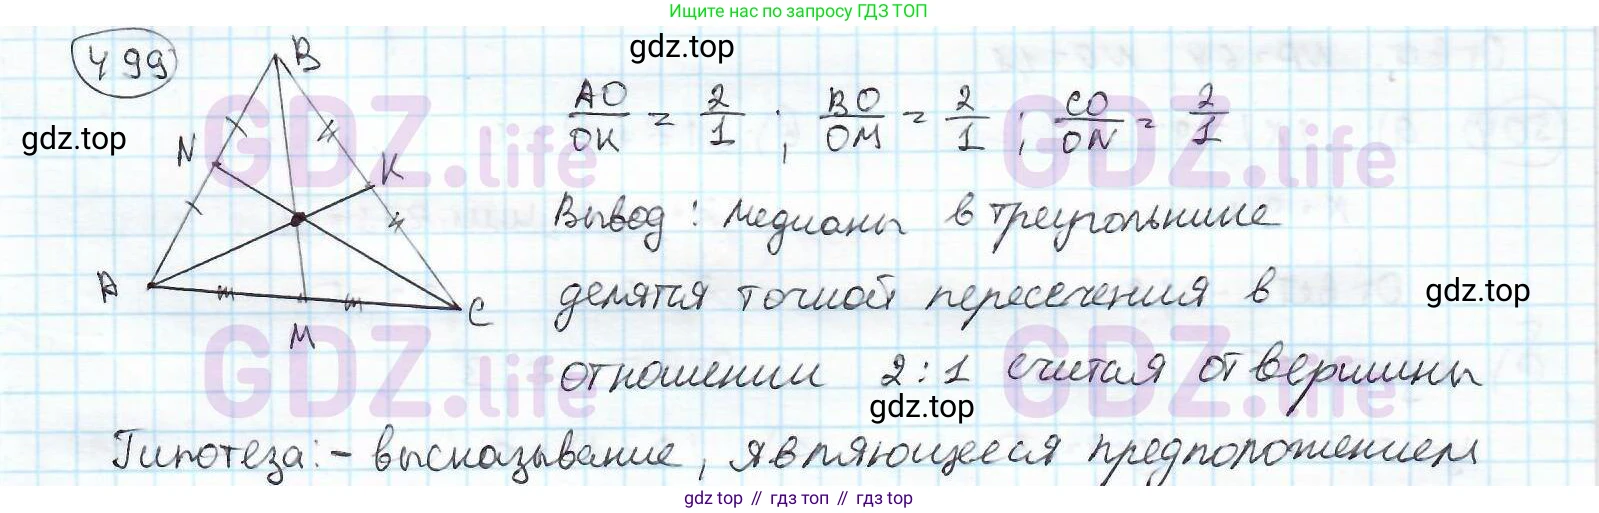 Ищите нас по запросу ГДЗ ТОП
499
B
N
K
A
M
C
gdz.top
gdz.top
AO/OK = 2/1 ; BO/OM = 2/1 ; CO/ON = 2/1
GDZ.life
GDZ.life
Вывод: Медианы в треугольнике
делятся точкой пересечения в
gdz.top
GDZ.life
GDZ.life
отношении 2:1 считая от вершины
gdz.top
Гипотеза: - высказывание, являющееся предположением
gdz top // гдз топ // gdz top